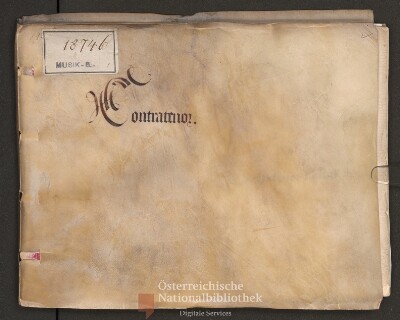 18746
MUSIK-S.
Contratenor.
Österreichische
Nationalbibliothek
Digitale Services